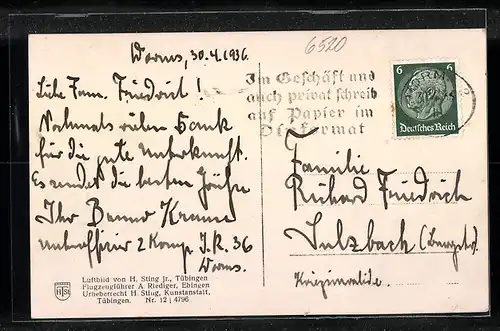 Worms, 30.4.1936.
6520
Liebe Fam. Friedrich!
Nochmals vielen Dank
für die gute Unterkunft.
Es sendet die besten Grüße
Ihr Benno
Unteroffizier 2 Komp. I.R. 36
Worms.
Luftbild von H. Sting Jr., Tübingen
Flugzeugführer A Riediger, Ebingen
Urheberrecht H. Sting, Kunstanstalt,
Tübingen. Nr. 12 | 4796
HStT
Im Geschäft und
auch privat schreib
auf Papier im
Dinformat
6 6
Deutsches Reich
WORMS 2
Familie
Richard Friedrich
Sulzbach
Kriegsinvalide.